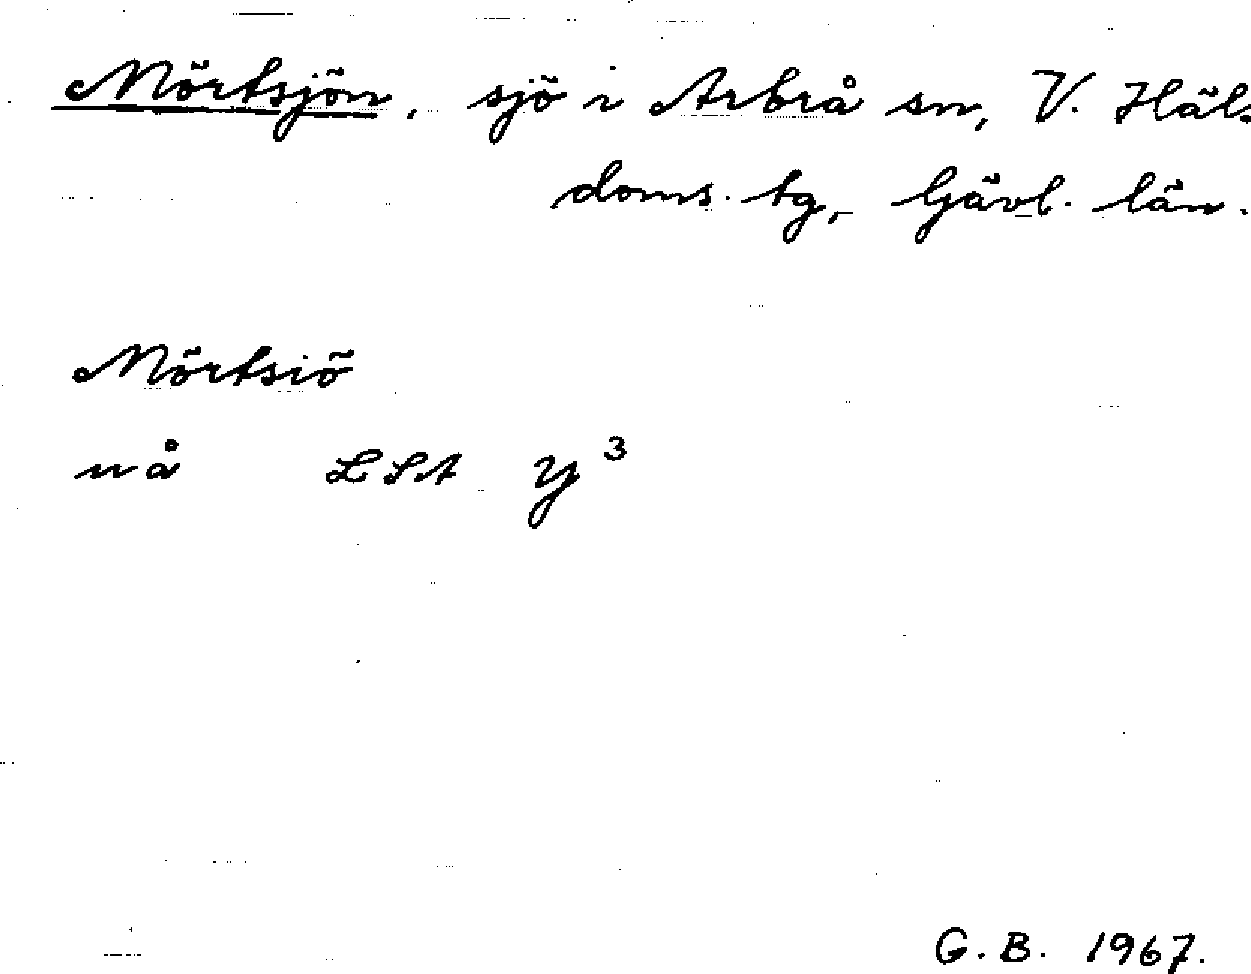 Mörtsjön, sjö i Arbrå sn, V. Häl.
doms. tg, Gävl. län.
Mörtsiö
nå LSA Y³
G.B. 1967.